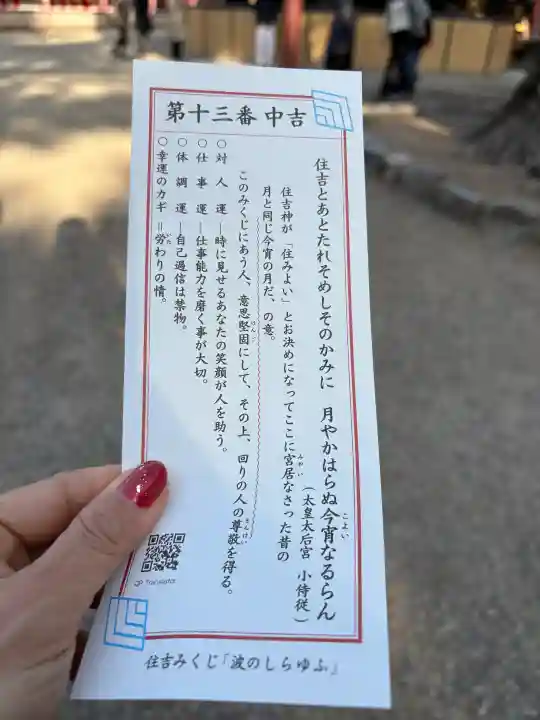 第十三番 中吉
住吉とあとたれそめしそのかみに 月やかはらぬ今宵なるらん
こよい
(太皇太后宮 小侍従)
住吉神が「住みよい」とお決めになってここに宮居なさった昔の
みやい
月と同じ今宵の月だ、の意。
このみくじにあう人、意思堅固にして、その上、回りの人の尊敬を得る。
けんご
そんけい
○対人運―時に見せるあなたの笑顔が人を助う。
○仕事運―仕事能力を磨く事が大切。
○体調運―自己過信は禁物。
○幸運のカギ=労わりの情。
いた
JP Translator
住吉みくじ「波のしらゆふ」